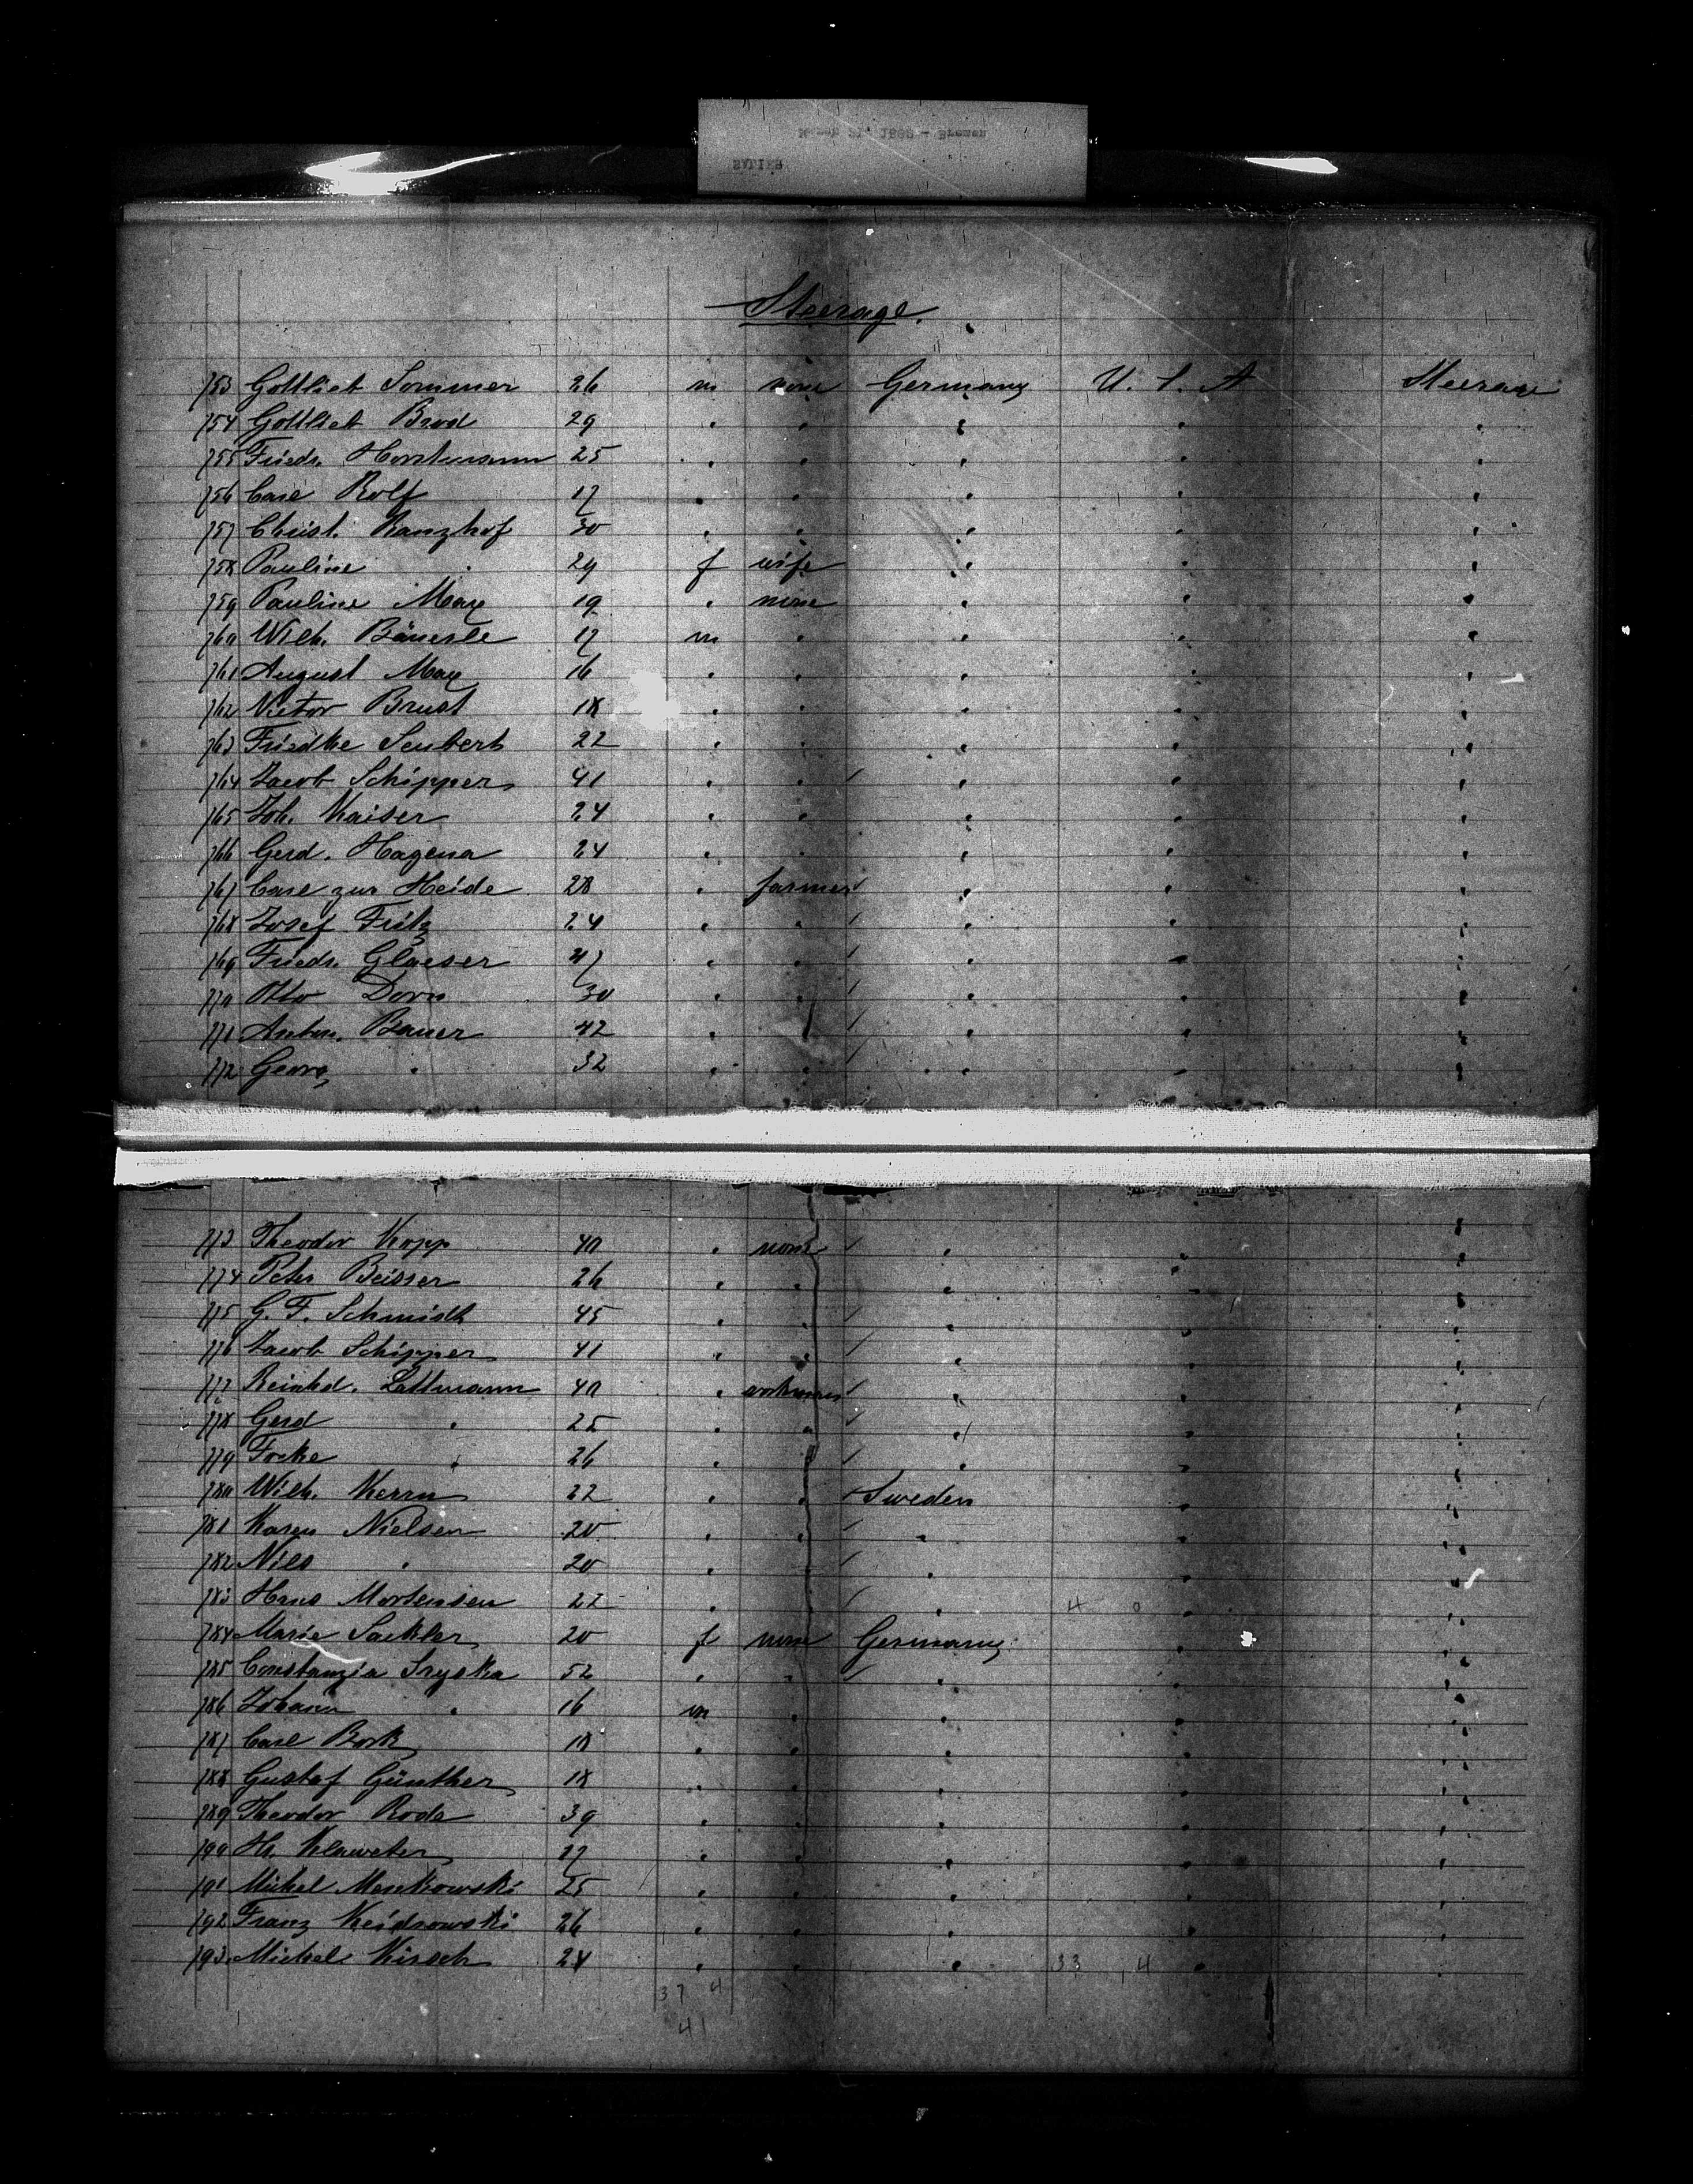 Steerage.
753 Gottlieb Sommer 26 m none Germany U. S. A Steerage
754 Gottlieb Brod 29 " " " " "
755 Friedr. Horstmann 25 " " " " "
756 Carl Rolf 17 " " " " "
757 Christ. Ranzhof 30 " " " " "
758 Pauline " 29 f wife " " "
759 Pauline May 19 " none " " "
760 Wilh. Bäuerle 17 m " " " "
761 August May 16 " " " " "
762 Victor Brust 18 " " " " "
763 Friedke Seubert 22 " " " " "
764 Jacob Schipper 41 " " " " "
765 Joh. Kaiser 24 " " " " "
766 Gerd. Hagena 24 " " " " "
767 Carl zur Heide 28 " farmer " " "
768 Josef Fritz 24 " " " " "
769 Friedr. Glaeser 47 " " " " "
770 Otto Dorn 30 " " " " "
771 Anton. Bauer 42 " " " " "
772 Georg " 32 " " " " "
773 Theodor Kopp 40 " none " " "
774 Peter Beisser 26 " " " " "
775 G. F. Schmidt 45 " " " " "
776 Jacob Schipper 41 " " " " "
777 Reinhd. Lattmann 40 " workman " " "
778 Gerd " 25 " " " " "
779 Focke " 26 " " " " "
780 Wilh. Kerrn 22 " " Sweden " "
781 Karen Nielsen 20 " " " " "
782 Nils " 20 " " " " "
783 Hans Mortensen 22 " " " 4 0 " "
784 Marie Sackler 20 f none Germany " "
785 Constanzia Sryska 52 " " " " "
786 Johann " 16 m " " " "
787 Carl Bork 18 " " " " "
788 Gustaf Günther 18 " " " " "
789 Theodor Rode 39 " " " " "
790 H. Klaweter 27 " " " " "
791 Michel Mankowski 25 " " " " "
792 Franz Keidrowski 26 " " " " "
793 Michel Kirsch 24 " " " 33 4 " "
37 4
41